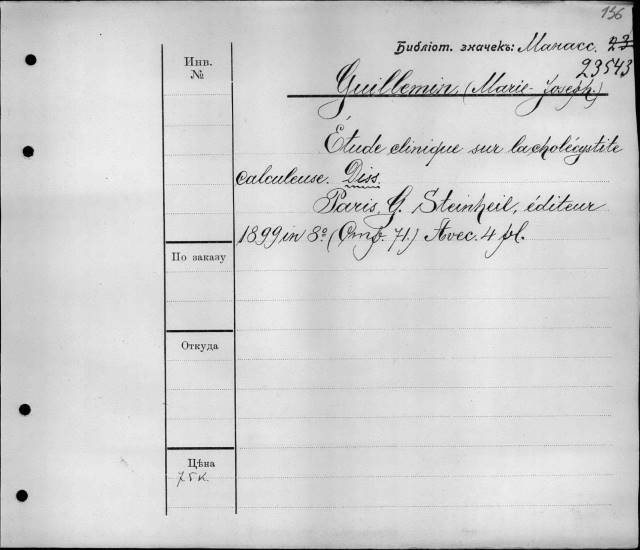 136
Библіот. значекъ: Манасс. 23
23543
Инв.
№
Guillemin, (Marie-Joseph)
Étude clinique sur la cholécystite
calculeuse. Diss.
Paris, G. Steinheil, éditeur
1899 in 8º (Стр. 71.) Avec. 4 pl.
По заказу
Откуда
Цѣна
75к.